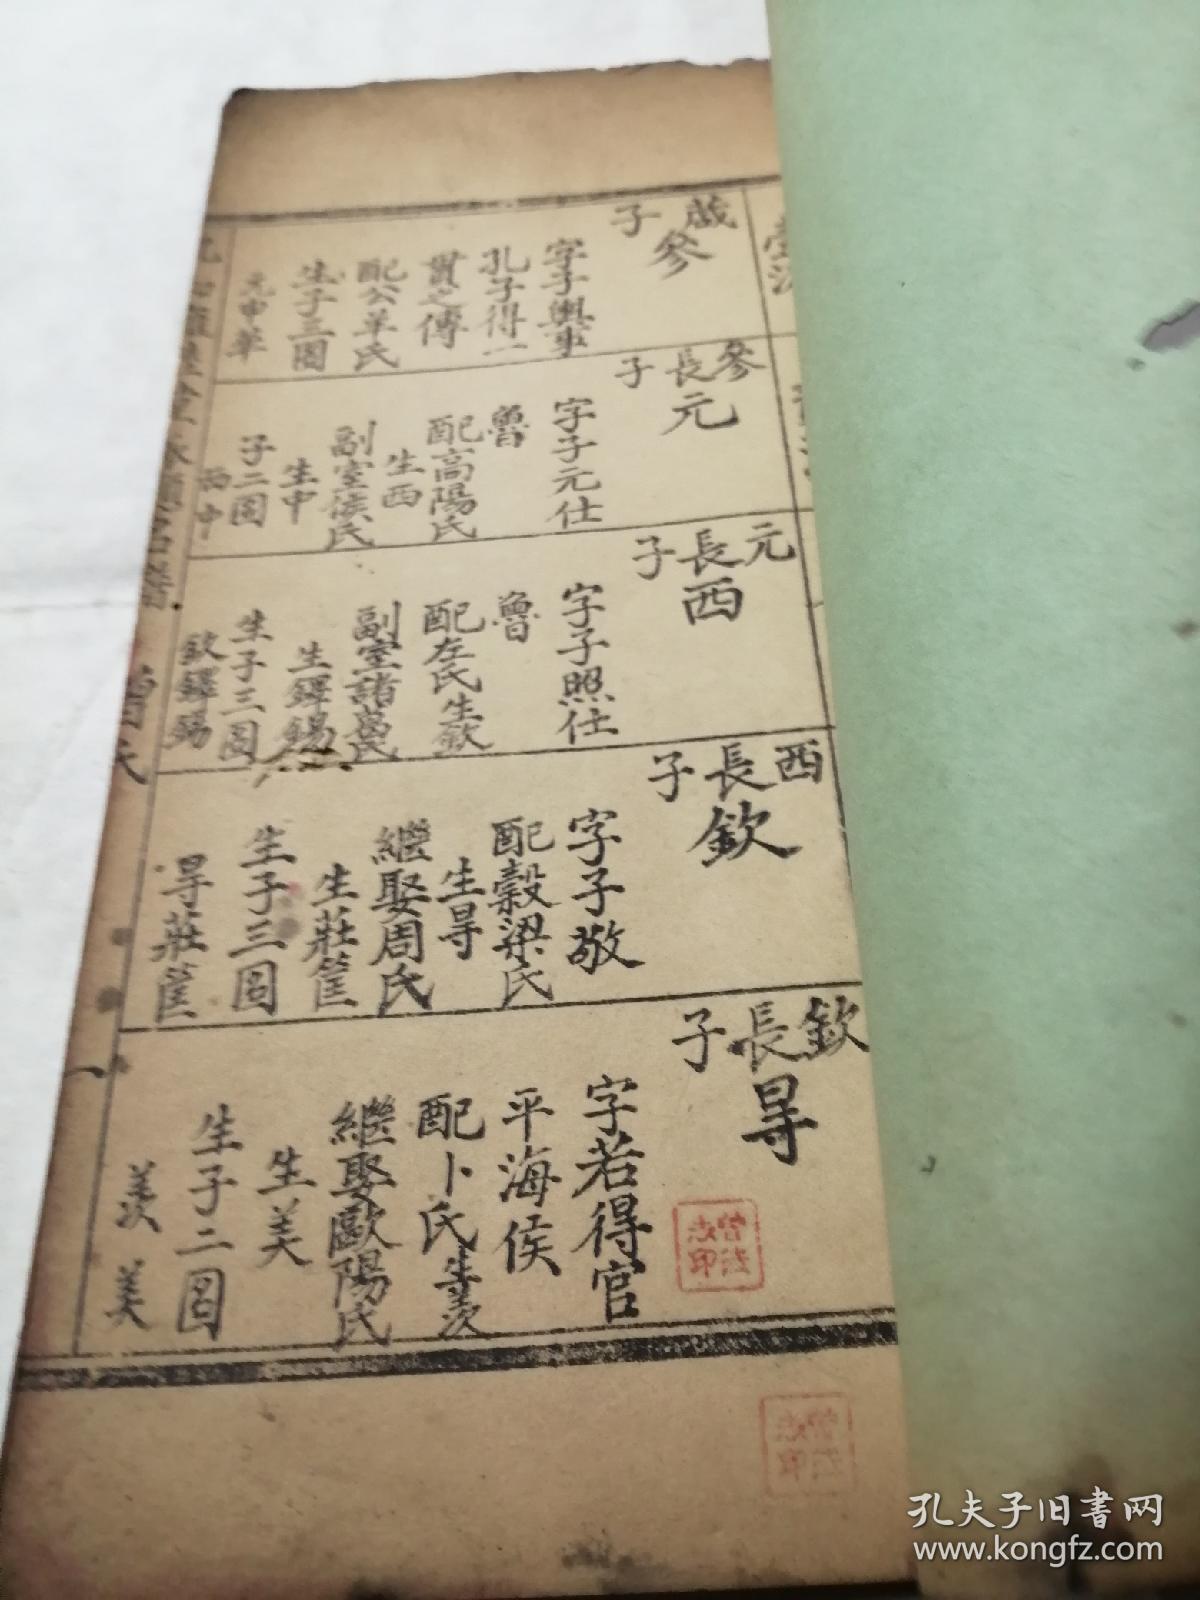 蒧子
參
字子輿事
孔子得一
貫之傳
配公羊氏
生子三圖
元申華
參長子
元
字子元仕
魯
配高陽氏
生西
副室侯氏
生中
子二圖
西中
元長子
西
字子照仕
魯
配左氏生欽
副室諸葛氏
生鐸錫
生子三圖
欽鐸錫
西長子
欽
字子敬
配穀梁氏
生㝵
繼娶周氏
生莊筐
生子三圖
㝵莊筐
欽長子
㝵
字若得官
平海侯
配卜氏生羨
繼娶歐陽氏
生美
生子二圖
羨美
曾氏
一
孔夫子旧书网
www.kongfz.com